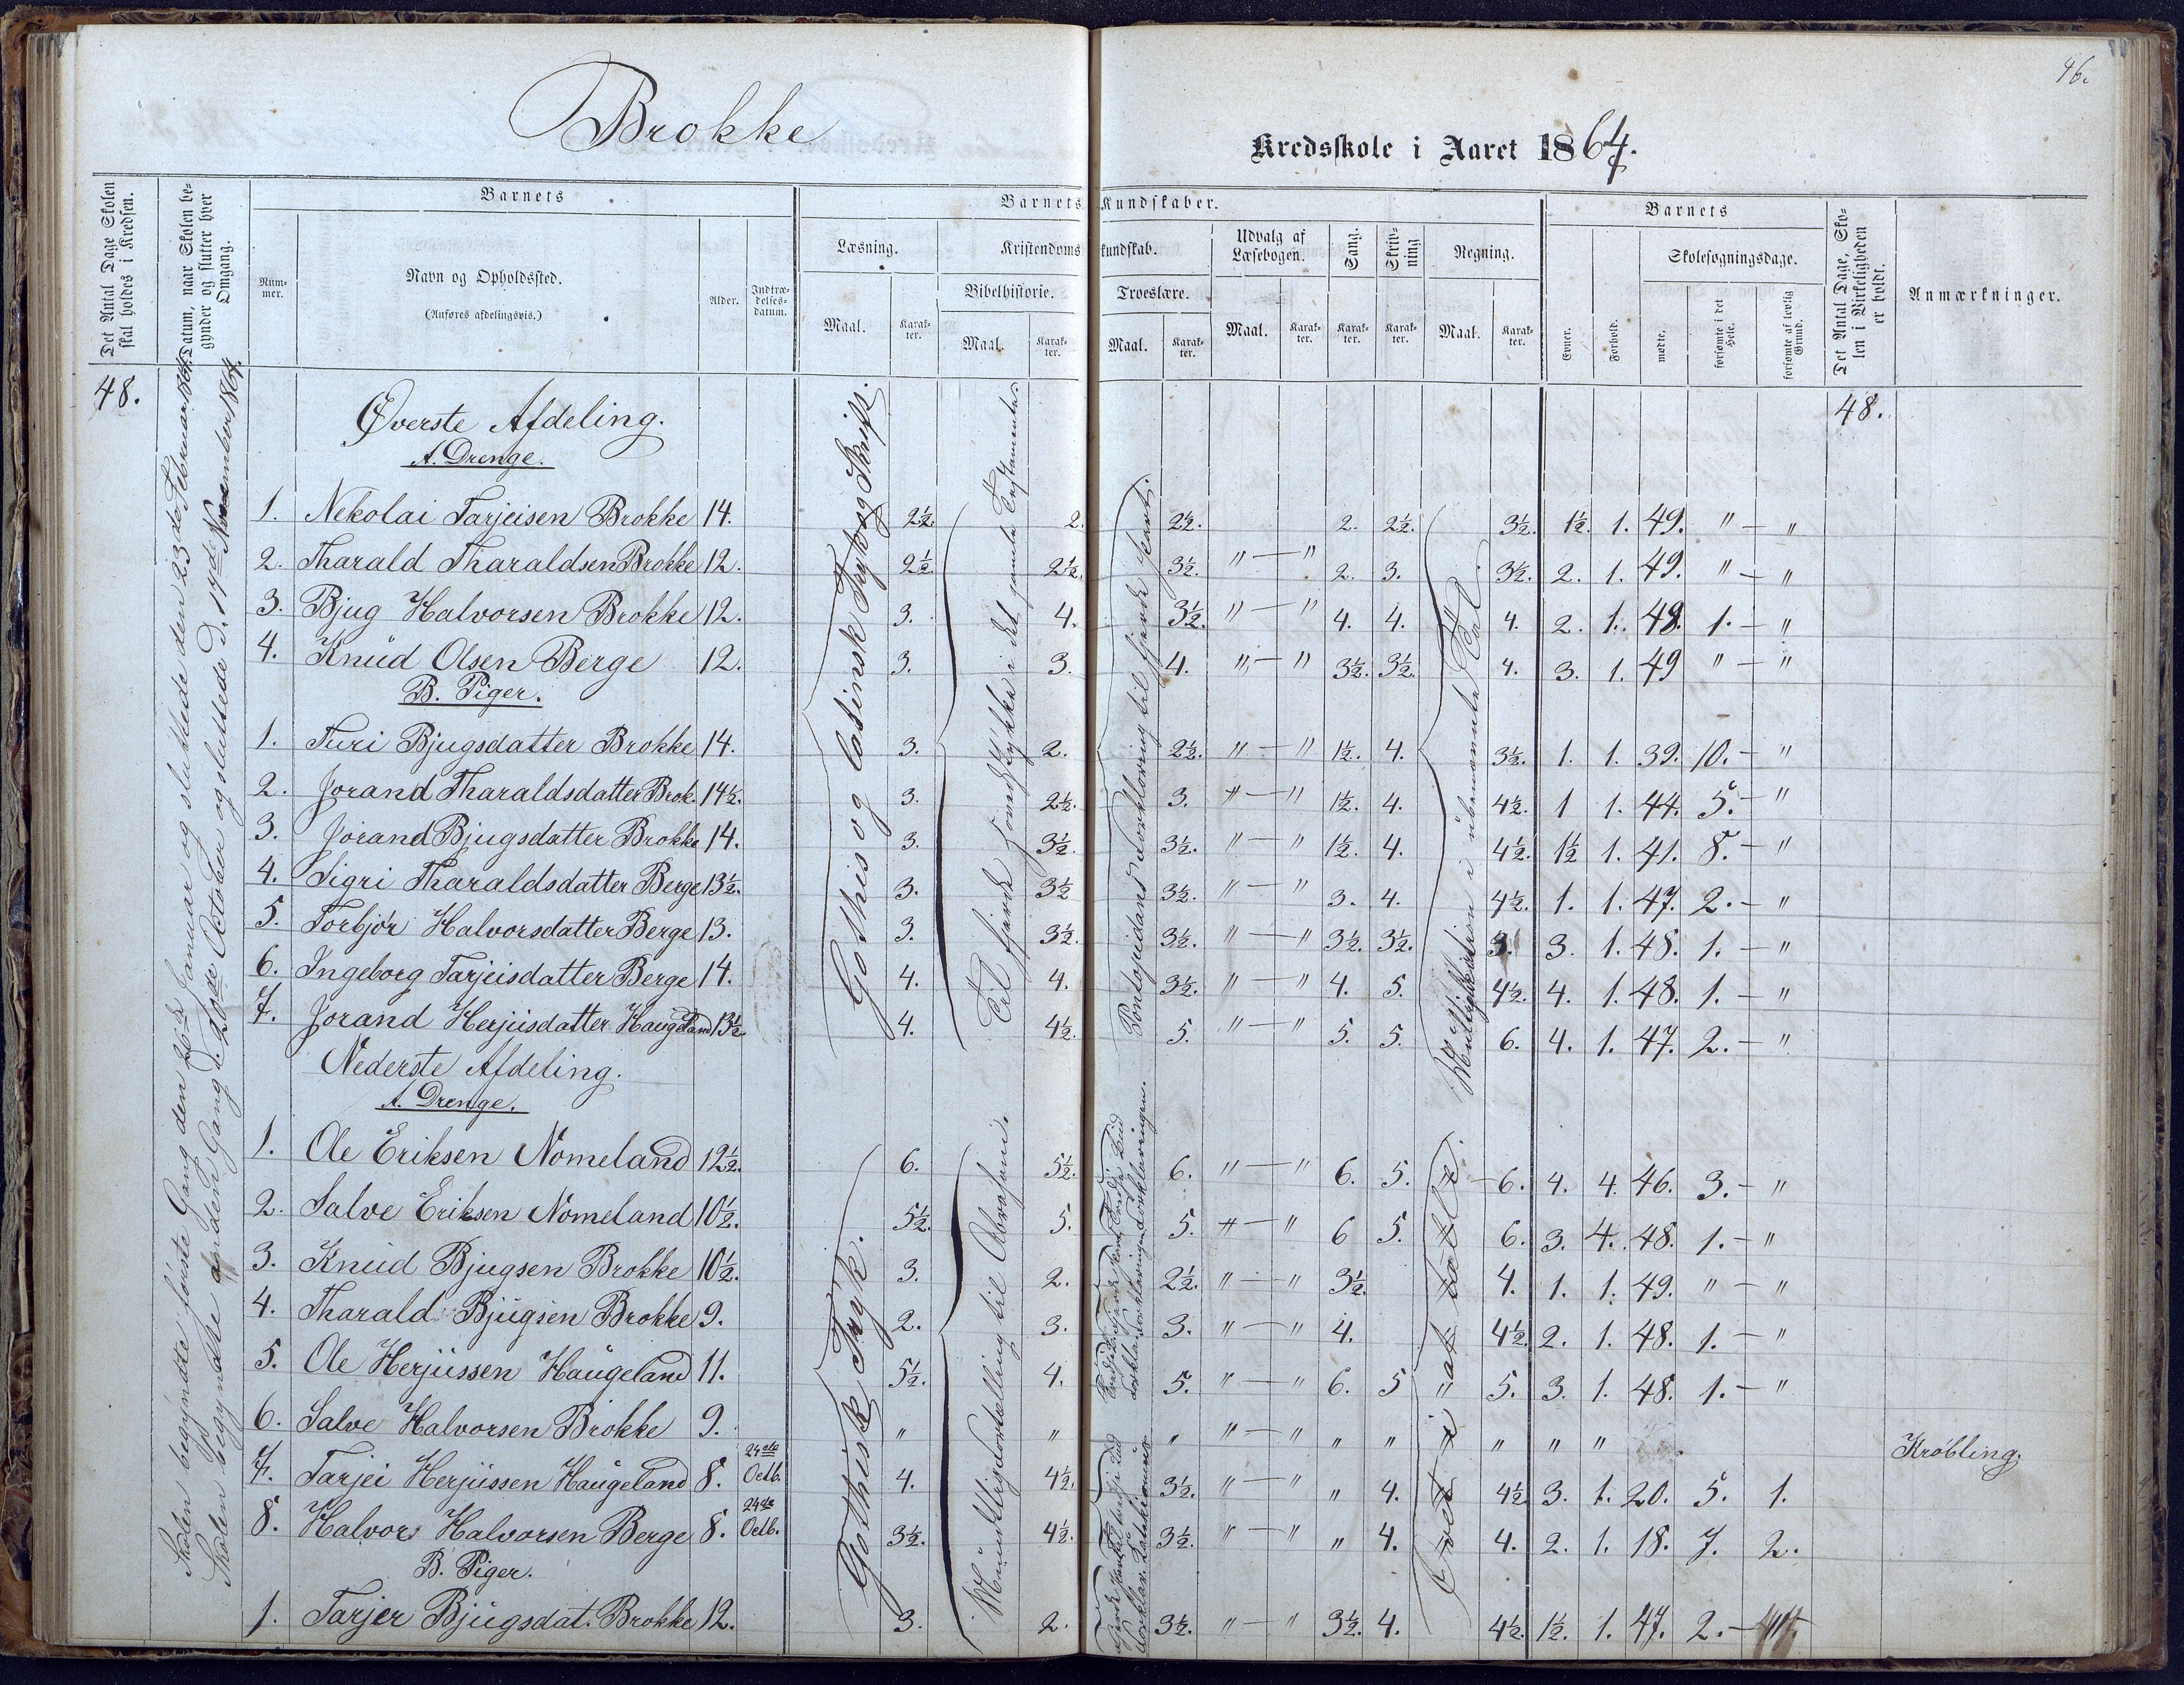 46.
Brokke
Kredsskole i Aaret 1864.
Det Antal Dage Skolen skal holdes i Kredsen.
Datum, naar Skolen begynder og slutter hver Omgang.
Barnets
Nummer.
Navn og Opholdssted.
(Anføres afdelingsvis.)
Alder.
Indtrædelsesdatum.
Barnets Kundskaber.
Læsning.
Maal.
Karakter.
Kristendomskundskab.
Bibelhistorie.
Maal.
Karakter.
Troeslære.
Maal.
Karakter.
Udvalg af Læsebogen.
Maal.
Karakter.
Sang.
Karakter.
Skrivning
Karakter.
Regning.
Maal.
Karakter.
Barnets
Evner.
Forhold.
Skolesøgningsdage.
mødte.
forsømte i det Hele.
forsømte af lovlig Grund.
Det Antal Dage, Skolen i Virkeligheden er holdt.
Anmærkninger.
48.
48.
Skolen begyndte første Gang den 26de Januar og sluttede den 23de Februar 1864.
Skolen begyndte anden Gang d. 20de October og sluttede d. 17de November 1864.
Øverste Afdeling.
A. Drenge.
Gothisk og latinsk Trykog Skrift.
Til fjerde Hovedstykke i det gamle Testamente
Pontoppidans Forklaring til fjerde Part.
Multiplikation i ubenævnte Tal.
1. Nekolai Tarjeisen Brokke 14. 2½. 2. 2½. 2. 2½. 3½. 1½. 1. 49. " — "
2. Tharald Tharaldsen Brokke 12. 2½. 2½. 3½. " — " 2. 3. 3½. 2. 1. 49. " — "
3. Bjug Halvorsen Brokke 12. 3. 4. 3½. " — " 4. 4. 4. 2. 1. 48. 1. — "
4. Knud Olsen Berge 12. 3. 3. 4. " — " 3½. 3½. 4. 3. 1. 49 " — "
B. Piger.
1. Turi Bjugsdatter Brokke 14. 3. 2. 2½. " — " 1½. 4. 3½. 1. 1. 39. 10. — "
2. Jorand Tharaldsdatter Brok. 14½. 3. 2½. 3. " — " 1½. 4. 4½. 1 1. 44. 5. — "
3. Jorand Bjugsdatter Brokke 14. 3. 3½. 3½. " — " 1½. 4. 4½. 1½ 1. 41. 8. — "
4. Sigri Tharaldsdatter Berge 13½. 3. 3½ 3½. " — " 3. 4. 4½. 1. 1. 47. 2. — "
5. Torbjør Halvorsdatter Berge 13. 3. 3½. 3½. " — " 3½. 3½. 3. 3. 1. 48. 1. — "
6. Ingeborg Tarjeisdatter Berge 14. 4. 4. 3½. " — " 4. 5. 4½. 4. 1. 48. 1. — "
7. Jorand Herjusdatter Haugeland 13½. 4. 4½. 5. " — " 5. 5. 6. 4. 1. 47. 2. — "
Nederste Afdeling.
A. Drenge.
Gothisk Tryk.
Mundtlig Fortælling til Abraham.
Øvet i at tælle
1. Ole Eriksen Nomeland 12½. 6. 5½. 6. " — " 6. 5. 6. 4. 4. 46. 3. — "
2. Salve Eriksen Nomeland 10½. 5½. 5. 5. " — " 6 5. 6. 3. 4. 48. 1. — "
3. Knud Bjugsen Brokke 10½. 3. 2. 2½. " — " 3½. 4. 1. 1. 49. " — "
4. Tharald Bjugsen Brokke 9. 2. 3. 3. " — " 4. 4½. 2. 1. 48. 1. — "
5. Ole Herjussen Haugeland 11. 5½. 4. 5. " — " 6. 5 5. 3. 1. 48. 1. — "
6. Salve Halvorsen Brokke 9. " " " " — " " " " " " Krøbling.
7. Tarjei Herjussen Haugeland 8. 24de Octb. 4. 4½. 3½. " — " " 4. 4½ 3. 1. 20. 5. 1.
8. Halvor Halvorsen Berge 8. 24de Octb. 3½. 4½. 3½. " — " " 4. 4. 2. 1. 18. 7. 2.
B. Piger.
1. Tarjer Bjugsdat. Brokke 12. 3. 2. 3½. " — " 3½. 4. 4½. 1½. 1. 47. 2. —